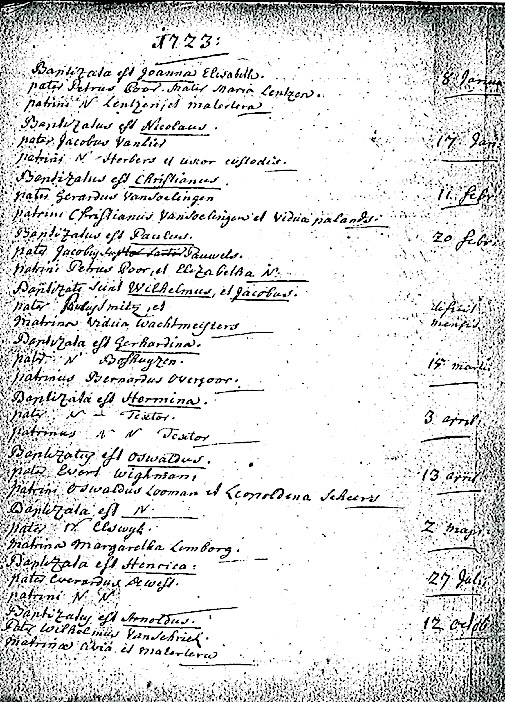 1723:
Baptizata est Joanna Elisabeth. 8 Janua
pater Petrus Poor. mater Maria Lentzen.
patrini N Lentzen, et matertera
Baptizatus est Nicolaus. 17 Jan
pater Jacobus Vanlier
patrini N Herbers et uxor custodis.
Baptizatus est Christianus. 11 febr
pater Gerardus Vansoelingen
patrini Christianus Vansoelingen et vidua palandts.
Baptizatus est Paulus. 20 febr
pater Jacobus Pauwels.
patrini Petrus Poor, et Elizabetha N.
Baptizati sunt Wilhelmus, et Jacobus.
pater smitz, et deficit
matrina vidua wachtmeisters mensis
Baptizata est Gerhardina.
pater N Boshuyzen. 15 marti
patrinus Bernardus Overgoor.
Baptizata est Hermina.
pater N - Textor. 3 april
patrinus N N Textor
Baptizatus est Oswaldus.
pater Evert wighmans 13 april
patrini Oswaldus Looman et Leopoldena Scheers
Baptizata est N.
pater N. Elswyk. 2 maji
matrina Margaretha Limborg.
Baptizata est Henrica:
pater Everardus Dewest. 27 Juli
patrini N N
Baptizatus est Arnoldus. 12 octob
Pater Wilhelmus Vanschriek.
matrina avia et matertera